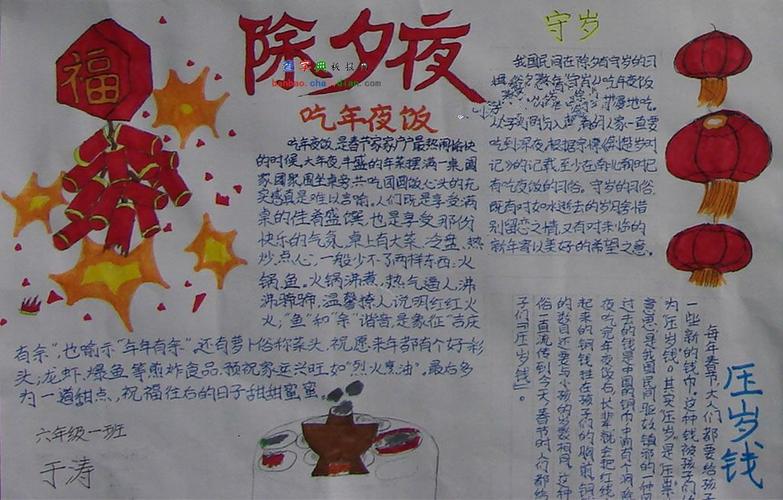 福
除夕夜
吃年夜饭
吃年夜饭,是春节家家户户最热闹愉快
的时候。大年夜丰盛的年菜摆满一桌,阖
家团聚,围坐桌旁,共吃团圆饭,心头的充
实感真是难以言喻。人们既是享受满
桌的佳肴盛馔,也是享受那份
快乐的气氛,桌上有大菜、冷盘、热
炒、点心,一般少不了两样东西:火
锅、鱼。火锅沸煮,热气
腾腾,温馨撩人,说明红红火
火;"鱼"和"余"谐音,是象征"吉庆
有余",也喻示"年年有余"。还有萝卜俗称菜头,祝愿来年都有个好彩
头;龙虾、爆鱼等煎炸食品,预祝家运兴旺,如"烈火烹油"。最后多
为一道甜点,祝福往后的日子甜甜蜜蜜
六年级一班
于涛
守岁
我国民间在除夕有守岁的习
吃年夜饭
吃到深夜。根据宗懔《荆楚岁时
记》的记载,至少在南北朝时已
有吃夜饭的习俗。守岁的习俗,
既有对如水逝去的岁月含惜
别留恋之情,又有对来临的
新年寄以美好的希望之意。
压岁钱
每年春节大人们都要给孩
一些新的钱币。这种钱被孩子们
为"压岁钱"。其实压岁是压祟
意思,是我国民间驱妖镇邪的一种
过去的钱是中国的铜币,中间有个洞
夜吃完年夜饭后,长辈就会把红线
起来的铜钱挂在孩子们的胸前,铜
的数目还要与小孩的岁数相同。这种
俗一直流传到今天,春节时人们都给
子们"压岁钱"。